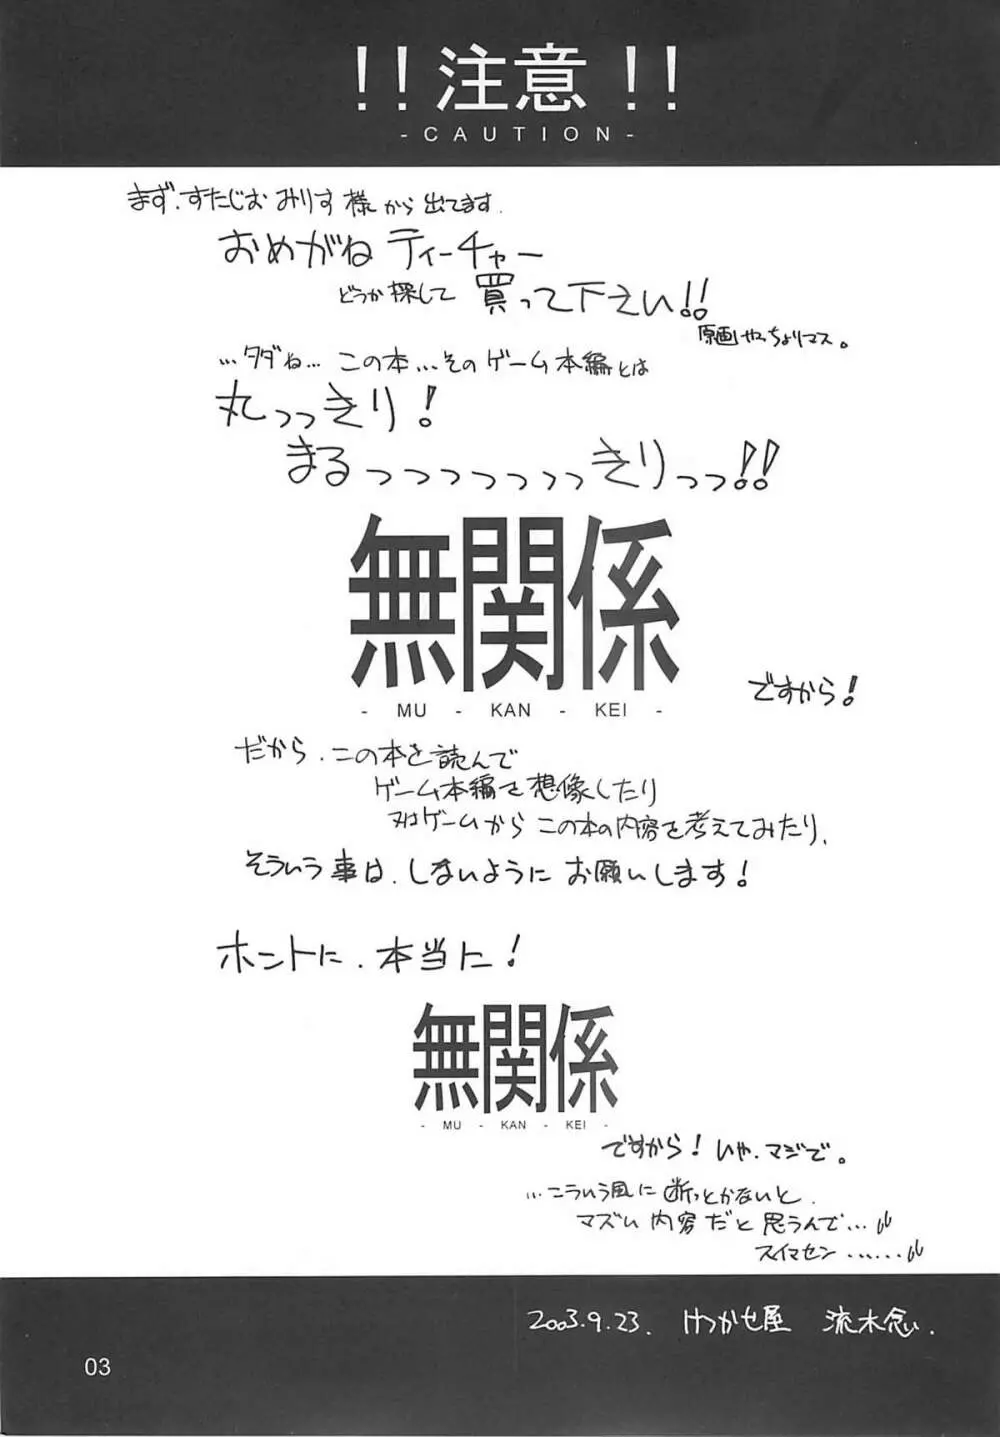 !!注意!!
- CAUTION -
まず、すたじおみりす様から出てます。
おめがねティーチャー
どうか探して買って下さい!!
原画やっちょりマス。
…タダね…この本…そのゲーム本編とは
丸っっきり!
まるっっっっっっっきりっっ!!
無関係
- MU - KAN - KEI -
ですから!
だから、この本を読んで
ゲーム本編を想像したり
又はゲームからこの本の内容を考えてみたり、
そういう事は、しないようにお願いします!
ホントに、本当に!
無関係
- MU - KAN - KEI -
ですから!いや、マジで。
…こういう風に断っとかないと、
マズい内容だと思うんで…
スイマセン……
2003.9.23. けつかせ屋 流木念い.
03